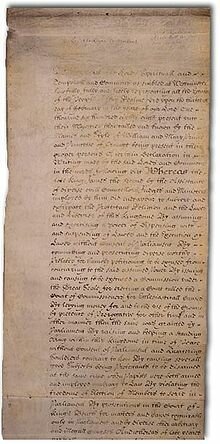 Lords Spirituall and
Temporall and Commons assembled at Westminster
lawfully fully and freely representing all the Estates
of the People of this Realme did upon the thirteenth
day of February in the yeare of our Lord One
thousand six hundred eighty eight present unto
their Majesties then called and known by the
Names and Stile of William and Mary Prince
and Princesse of Orange being present in their
proper persons a certain Declaration in
Writing made by the said Lords and Commons
in the words following viz Whereas the
late King James the Second by the assistance
of diverse evill Councellors Judges and Ministers
employed by him did endeavour to subvert and
extirpate the Protestant Religion and the Laws
and Liberties of this Kingdome By assuming
and exercising a power of dispensing with
and suspending of Lawes and the Execution of
Lawes without consent of Parliament By
committing and prosecuting diverse worthy
Prelates for humbly petitioning to be excused from
concurring to the said assumed power By issuing
and causing to be executed a Commission under
the Great Seale for erecting a Court called the
Court of Commissioners for Ecclesiasticall Causes
By levying money for and to the use of the Crowne
by pretence of Prerogative for other time and in
other manner then the same was granted by
Parliament By raising and keeping a standing
Army within this Kingdome in time of peace
without consent of Parliament and quartering
Souldiers contrary to Law By causing severall
good Subjects being Protestants to be disarmed
at the same time when Papists were both armed
and employed contrary to Law By violating the
freedome of Election of Members to serve in
Parliament By prosecutions in the Court of
Kings Bench for matters and causes cognizable
only in Parliament and by diverse other arbitrary
and illegall courses